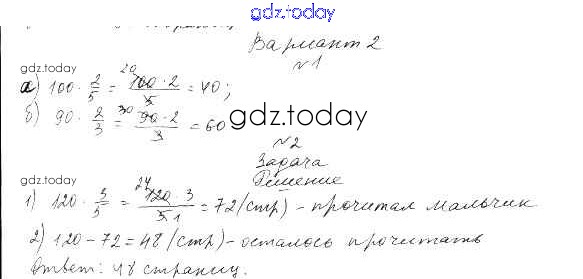 gdz.today
Вариант 2
№1
gdz.today
а) 100 · 2/5 = 20 100·2/5 = 40;
б) 90 · 2/3 = 30 90·2/3 = 60
gdz.today
№2
Задача
gdz.today
Решение
1) 120 · 3/5 = 24 120·3/5 1 = 72 (стр) - прочитал мальчик
2) 120 - 72 = 48 (стр) - осталось прочитать
Ответ: 48 страниц.
gdz.today